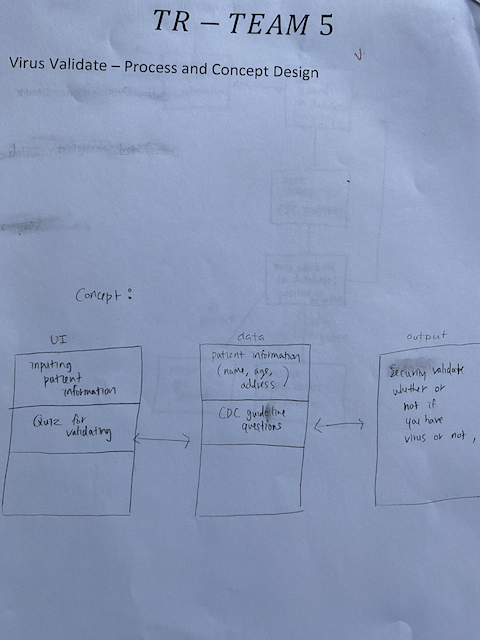 TR – TEAM 5
Virus Validate – Process and Concept Design
Concept :
UI
inputing
patient
information
Quiz for
validating
data
patient information
(name, age,
address)
CDC guideline
questions
output
Security validate
whether or
not if
you have
virus or not,